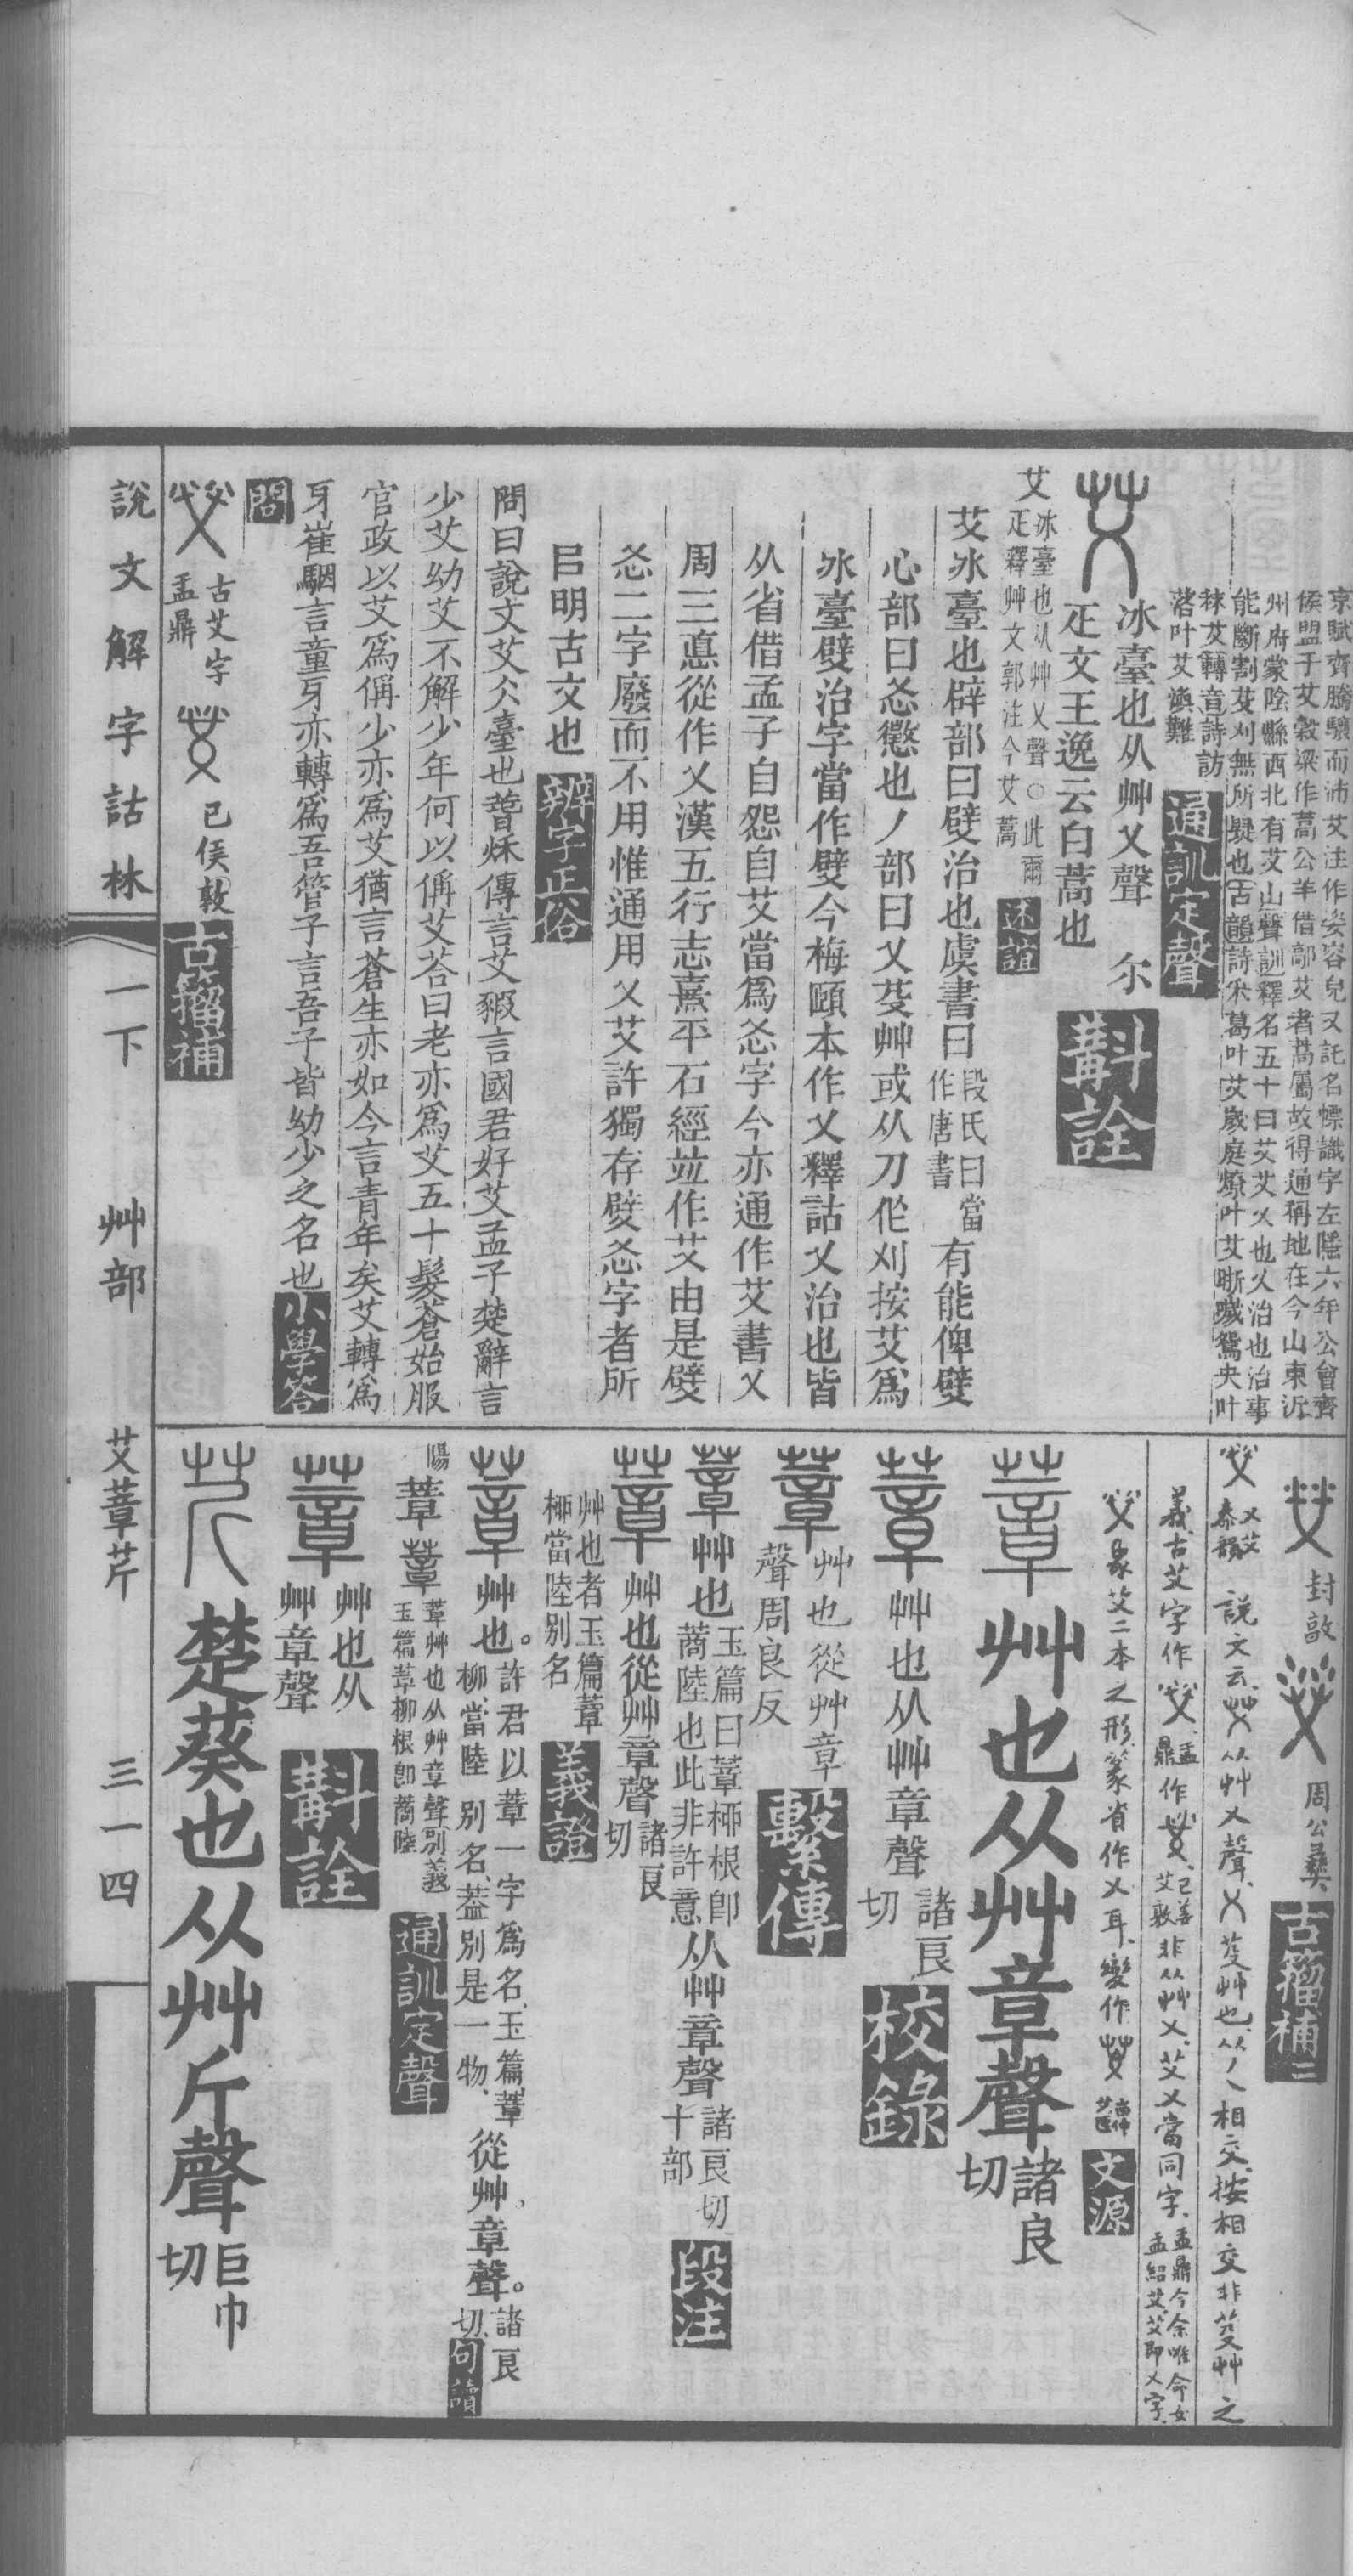 京賦齊騰驤而沛艾注作姿容皃又託名幖識字左隱六年公會齊
侯盟于艾穀梁作蒿公羊借鄗艾者蒿屬故得通稱地在今山東沂
州府蒙陰縣西北有艾山聲訓釋名五十曰艾艾乂也乂治也治事
能斷割艾刈無所疑也古韻詩采葛叶艾歲庭燎叶艾晣噦鴛央叶
秣艾轉音詩訪
落叶艾渙難
通訓定聲
冰臺也从艸乂聲 尒
疋文王逸云白蒿也
斠詮
艾
冰臺也从艸乂聲○此爾
疋釋艸文郭注今艾蒿
述誼
艾冰臺也辟部曰㢸治也虞書曰
段氏曰當
作唐書
有能俾㢸
心部曰忞懲也丿部曰乂芟艸或从刀作刈按艾爲
冰臺㢸治字當作㢸今梅頤本作乂釋詁乂治也皆
从省借孟子自怨自艾當爲㣻字今亦通作艾書乂
周三悳從作乂漢五行志熹平石經竝作艾由是㢸
㣻二字廢而不用惟通用乂艾許獨存㢸㣻字者所
㠯明古文也
辨字正俗
問曰說文艾仌臺也萅秌傳言艾豭言國君好艾孟子楚辭言
少艾幼艾不解少年何以偁艾荅曰老亦爲艾五十髮蒼始服
官政以艾爲偁少亦爲艾猶言蒼生亦如今言青年矣艾轉爲
牙崔駰言童牙亦轉爲吾管子言吾子皆幼少之名也
小學答
問
古艾字
盂鼎
已侯敦
古籀補
封敦
周公彝
古籀補二
乂艾
泰韻
說文云艾从艸乂聲乂芟艸也从丿乀相交按相交非芟艸之
義古艾字作
盂
鼎
作
艾敦
非从艸乂艾乂當同字
盂鼎今余唯命女
盂紹艾艾即乂字
象艾二本之形篆省作乂耳變作
文源
艸也从艸章聲
諸良
切
艸也从艸章聲
諸良
切
校錄
艸也從艸章
聲周良反
繫傳
艸也
玉篇曰葦柳根即
蔏陸也此非許意
从艸章聲
諸良切
十部
段注
艸也從艸章聲
諸良
切
艸也者玉篇葦
栁當陸別名
義證
艸也。
許君以葦一字爲名玉篇葦
柳當陸別名葢別是一物
從艸章聲。
諸良
切
句讀
陽
葦
葦艸也从艸章聲別義
玉篇葦柳根即蔏陸
通訓定聲
艸也从
艸章聲
斠詮
楚葵也从艸斤聲
巨巾
切
說文解字詁林 一下 艸部 艾葦芹 三一四